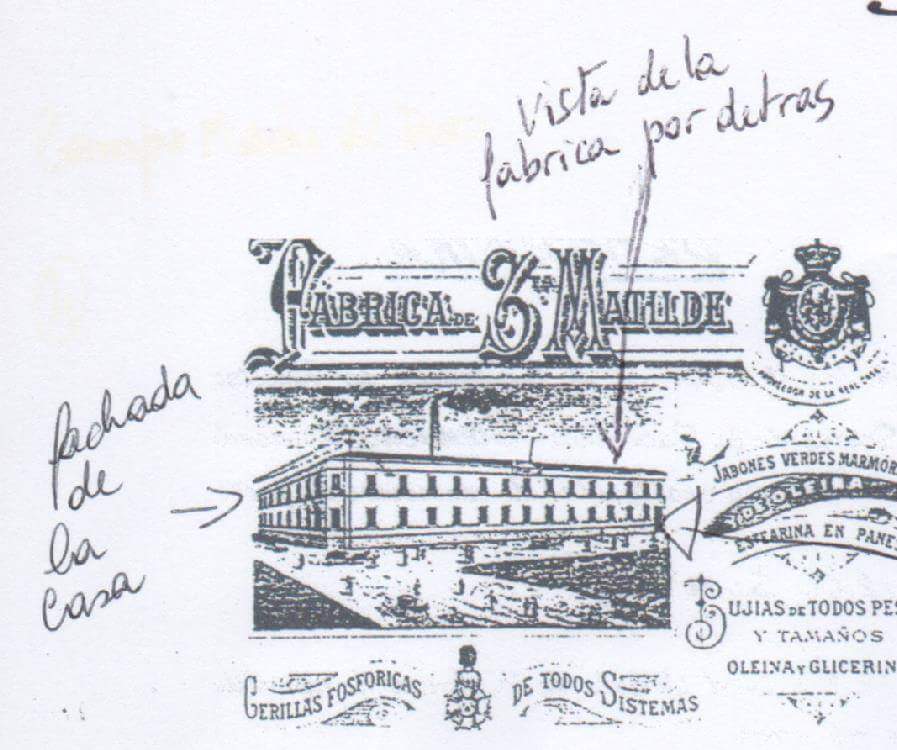 Vista de la
fabrica por detras
FABRICA DE Sta MATILDE
PROVEEDOR DE LA REAL CASA
fachada
de
la
Casa
JABONES VERDES MARMOR
ESTEARINA EN PANE
BUJIAS DE TODOS PES
Y TAMAÑOS
OLEINA Y GLICERIN
CERILLAS FOSFORICAS DE TODOS SISTEMAS